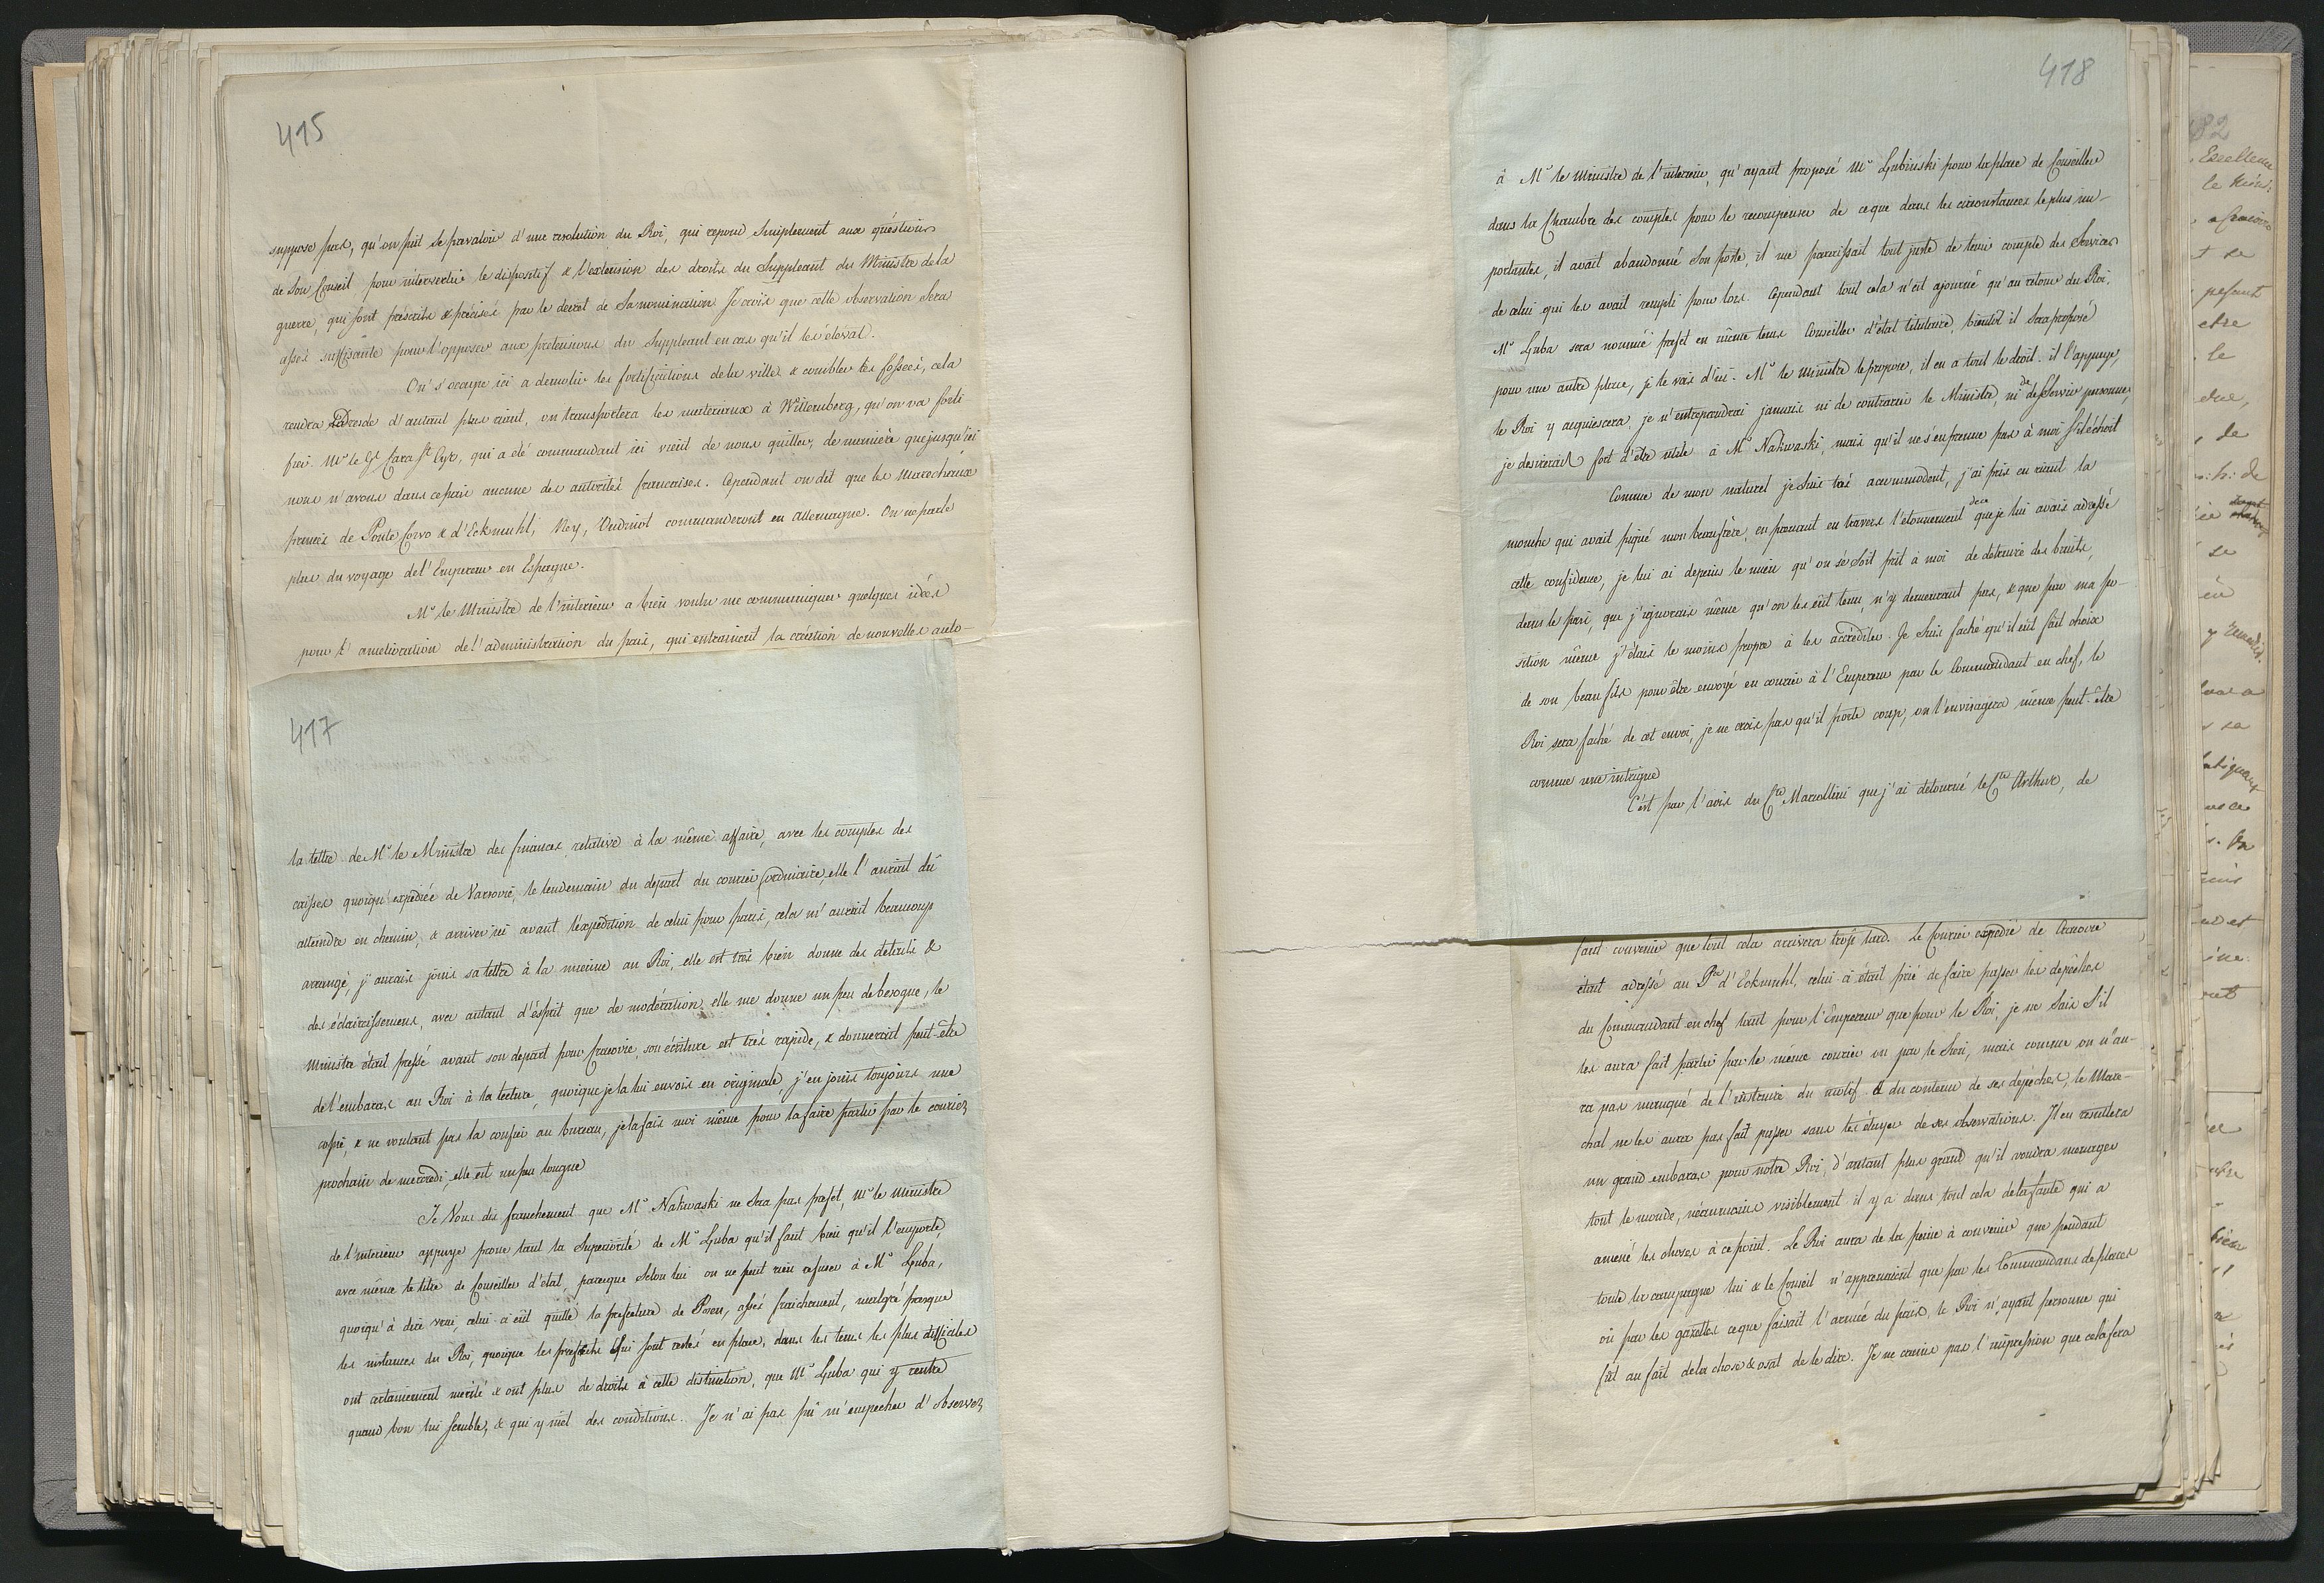 415
suppose pas, qu'on puit se prevaloir d'une resolution du Roi, qui repond simplement aux quéstions
de son Conseil pour intervertir le dispositif & l'extension des droits du Suppleant du Ministre de la
guerre, qui sont préscrits & précisés par le decret de sa nomination. Je crois que cette observation sera
assés suffisante pour l'opposer aux pretensions du Suppleant en cas qu'il les élevat.
On s'occupe ici a demolir les fortifications de la ville & combler les fossées, cela
rendra Dresde d'autant plus riant, on transportera les materiaux à Wittemberg, qu'on va forti
fier. Mr le Gl Cara St Cyr, qui a été commandant ici vient de nous quitter, de manière que jusqu'ici
nous n'avons dans ce païs aucune des autorités francaises. Cependant on dit que les Marechaux
princes de Ponte Corvo & d'Eckmuhl, Ney, Oudinot commanderont en Allemagne. On ne parle
plus du voyage de l'Empereur en Espagne.
Mr le Ministre de l'interieur a bien voulu me communiquer quelques idées
pour l'amelioration de l'administration du païs, qui entrainent la création de nouvelles auto-
417
la lettre de Mr le Ministre des finances, relative à la même affaire, avec les comptes des
caisses quoiqu'expediée de Varsovie, le lendemain du depart du courier ordinaire, elle l'aurait dû
atteindre en chemin, & arriver ici avant l'expedition de celui pour paris, cela m'aurait beaucoup
arrangé, j'aurais jouis sa lettre à la mienne au Roi, elle est tres bien donne des details &
des éclaircissemens, avec autant d'ésprit que de modération, elle me donne un peu de besogne, le
Ministre étant pressé avant son depart pour Cracovie, son écriture est très rapide, & donnerait peut-être
de l'embaras au Roi à la lecture, quoique je la lui envois en originale, j'en jouis toujours une
copie, & ne voulant pas la confier au bureau, je la fais moi même pour la faire partir par le courier
prochain de mercredi, elle est un peu longue
Je Vous dis franchement que Mr Nakwaski ne sera pas prefet, Mr le Ministre
de l'interieur appuye pour tant la Superiorité de Mr Łuba qu'il faut bien qu'il l'emporte,
avec même le titre de Conseiller d'état, parceque selon lui on ne peut rien refuser à Mr Łuba,
quoiqu'à dire vrai, celui-ci eût quitté la prefecture de Posen, assés fraichement, malgré presque
les instances du Roi, quoique les prefects qui sont restés en place, dans les tems les plus difficiles
ont certainement merité & ont plus de droits à cette distinction, que Mr Łuba qui y rentre
quand bon lui semble, & qui y met des conditions. Je n'ai pas pû m'empecher d'observer
418
à Mr le Ministre de l'interieur, qu'ayant proposé Mr Łubinski pour la place de Conseiller
dans la Chambre des comptes pour le recompenser de ce que dans les circonstances les plus im-
portantes, il avait abandonné son poste, il me paraissait tout juste de tenir compte des Services
de celui qui les avait rempli pour lors. Cependant tout cela n'est ajourné qu'au retour du Roi,
Mr Łuba sera nommé prefet en même tems Conseiller d'état titulaire, bientot il sera proposé
pour une autre place, je le vois d'ici. Mr le Ministre le propose, il en a tout le droit. il l'appuye,
le Roi y acquiescera, je n'entreprendrai jamais ni de contrarier le Ministre, ni de desservir personne,
je desirerais fort d'être utile à Mr Nakwaski, mais qu'il ne s'en prenne pas à moi s'il échoit
Comme de mon naturel je suis trés accommodent, j'ai pris en riant la
mouche qui avait piqué mon beaufrère, en prenant en travers l'etonnement de ce que je lui avais adressé
cette confidence, je lui ai depeins le mien qu'on se soit prit à moi de detruire des bruits,
dans le païs, que j'ignorais même qu'on les eût tenu, n'y demeurant pas, & que par ma po-
sition même j'étais le moins propre à les accréditer. Je suis faché qu'il eût fait choix
de son beau fils pour être envoyé en courier à l'Empereur par le Commandant en chef, le
Roi sera faché de cet envoi, je ne crois pas qu'il porte coup, on l'envisagera même peut-être
comme une intrigue
C'est par l'avis du Cte Marcollini que j'ai detourné le Cte Arthur, de
faut convenir que tout cela arrivera trop tard. Le Courier expedié de Cracovie
étant adressé au Pce d'Eckmuhl, celui-ci étant prié de faire passer les depêches
du Commandant en chef tant pour l'Empereur que pour le Roi, je ne sais s'il
les aura fait partir par le même courier ou par le sien, mais comme on n'au-
ra pas manqué de l'instruire du motif & du contenu de ses depêches, le Mare-
chal ne les aura pas fait passer sans les étayer de ses observations. Il en resultera
un grand embaras pour notre Roi, d'autant plus grand qu'il voudra menager
tout le monde, néanmoins visiblement il y a dans tout cela de la faute qui a
amené les choses à ce point. Le Roi aura de la peine à convenir que pendant
toute la campagne lui & le Conseil n'apprenaient que par les Commandans de places
où par les gazettes ce que faisait l'armée du païs, le Roi n'ayant personne qui
fût au fait de la chose & osat de le dire. Je ne crains pas l'impression que cela fera